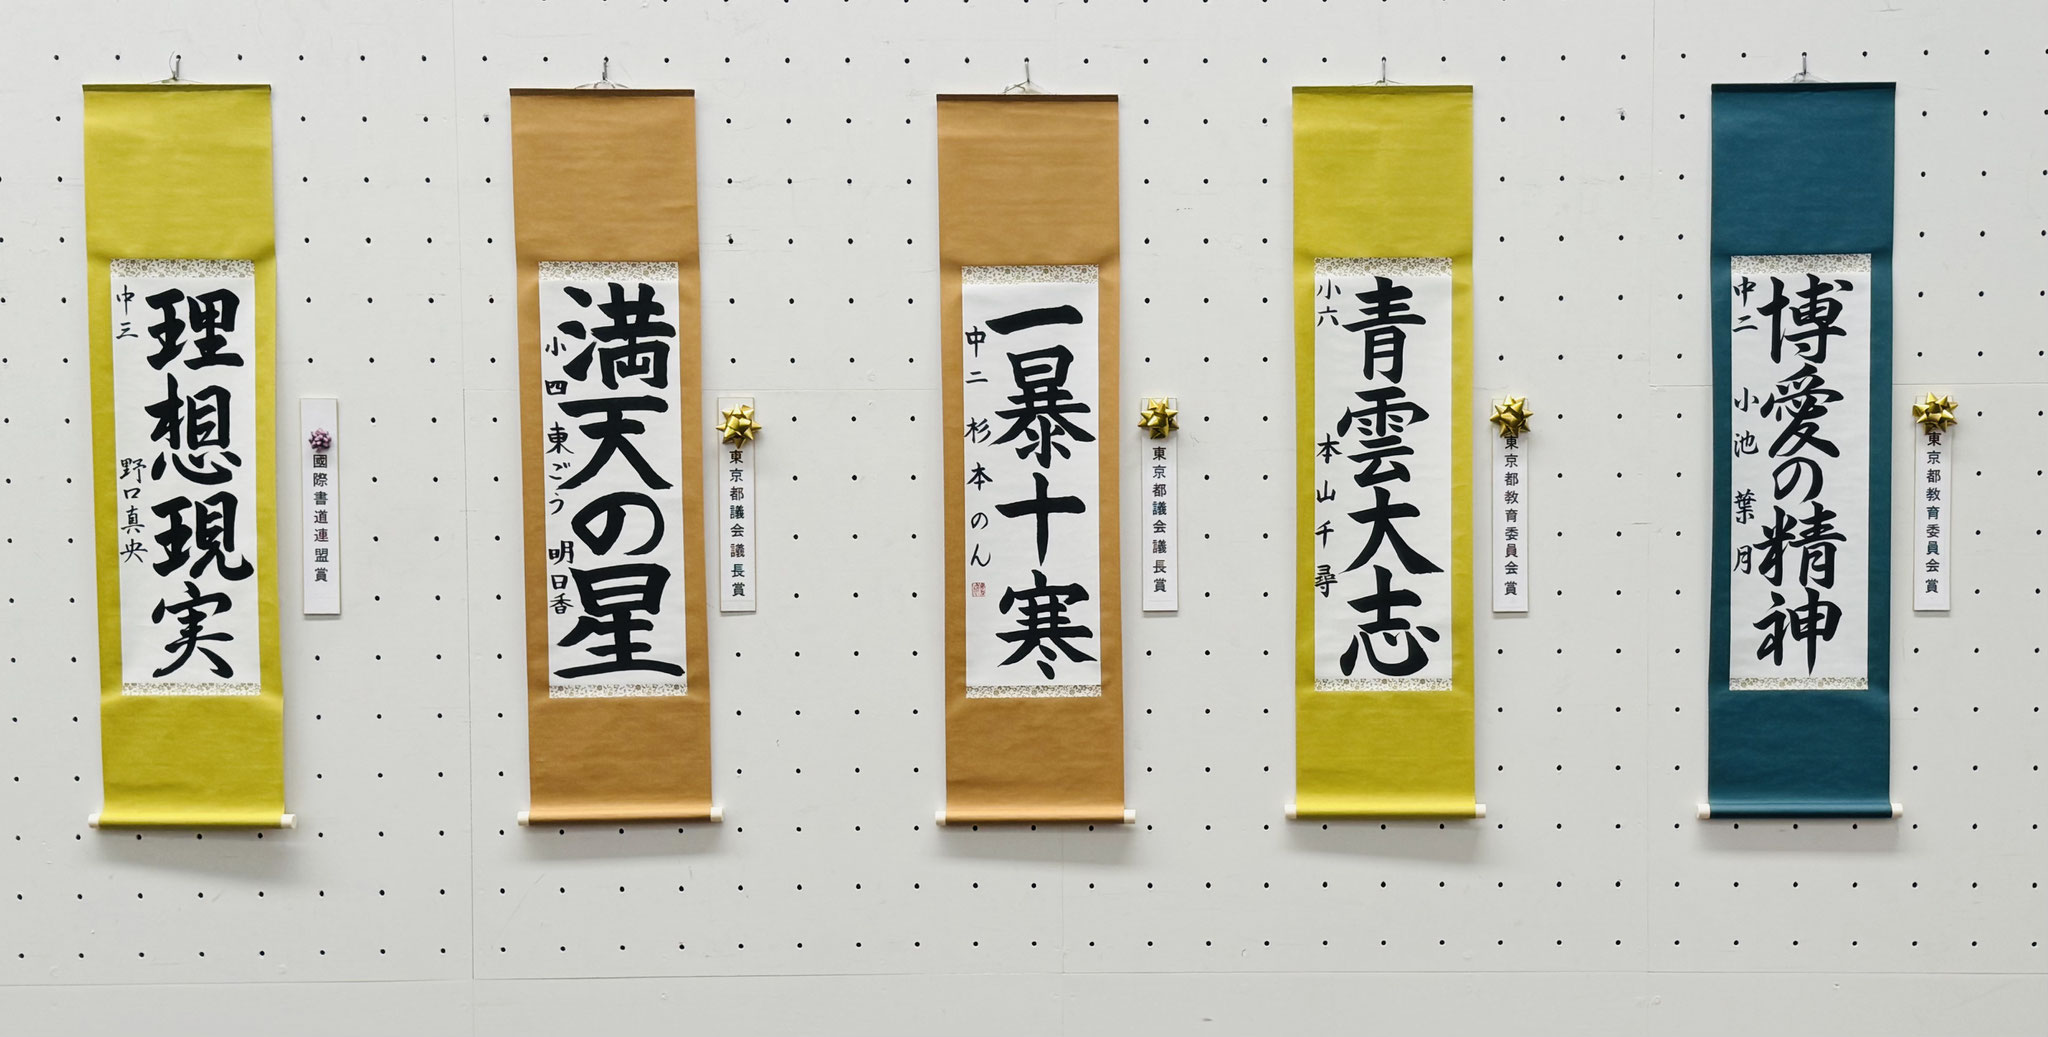 博愛の精神
中二 小池 葉月
東京都教育委員会賞
青雲大志
小六 本山千尋
東京都教育委員会賞
一暴十寒
中二 杉本のん
東京都議会議長賞
満天の星
小四 東ごう 明日香
東京都議会議長賞
理想現実
中三 野口真央
國際書道連盟賞